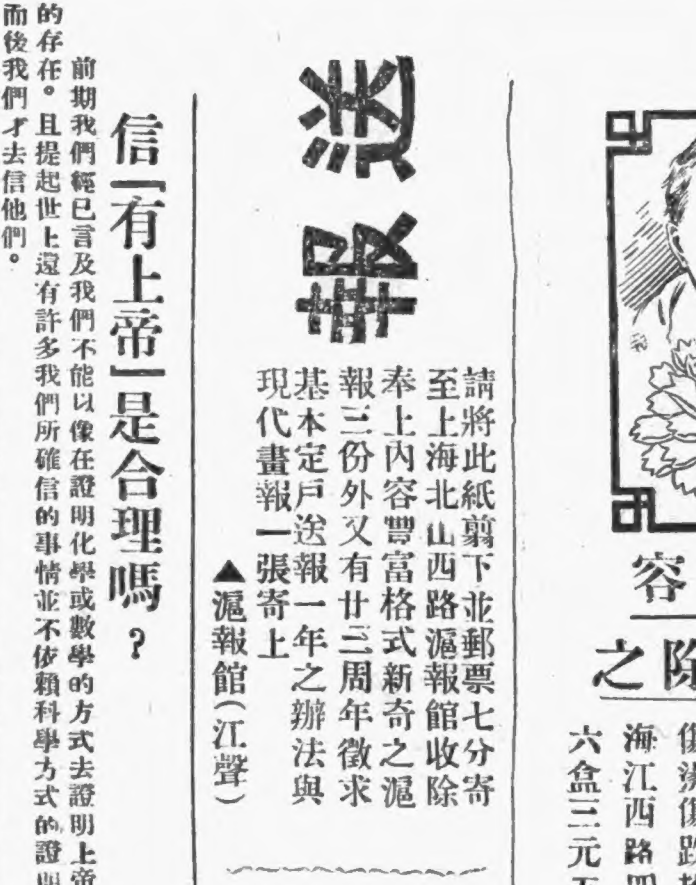 容
之除
海江西路四
六盒三元
送報
請將此紙剪下並郵票七分寄
至上海北山西路滬報館收除
奉上內容豐富格式新奇之滬
報三份外又有廿三周年徵求
基本定戶送報一年之辦法與
現代畫報一張寄上
▲滬報館(江聲)
信「有上帝」是合理嗎?
前期我們經已言及我們不能以像在證明化學或數學的方式去證明上帝
的存在。且提起世上還有許多我們所確信的事情並不依賴科學方式的證明
而後我們才去信他們。